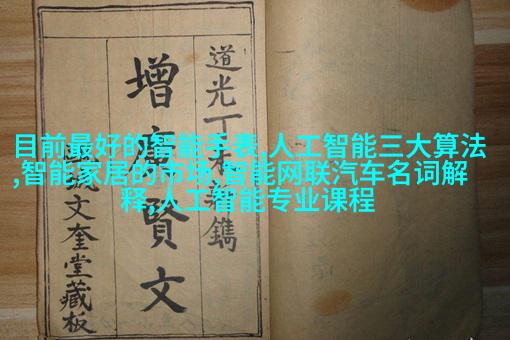 目前最好的智能手表,人工智能三大算法
,智能家居的市场,智能网联汽车名词解
释,人工智能专业课程
道光丁鐫
增廣賢文
文奎堂藏板